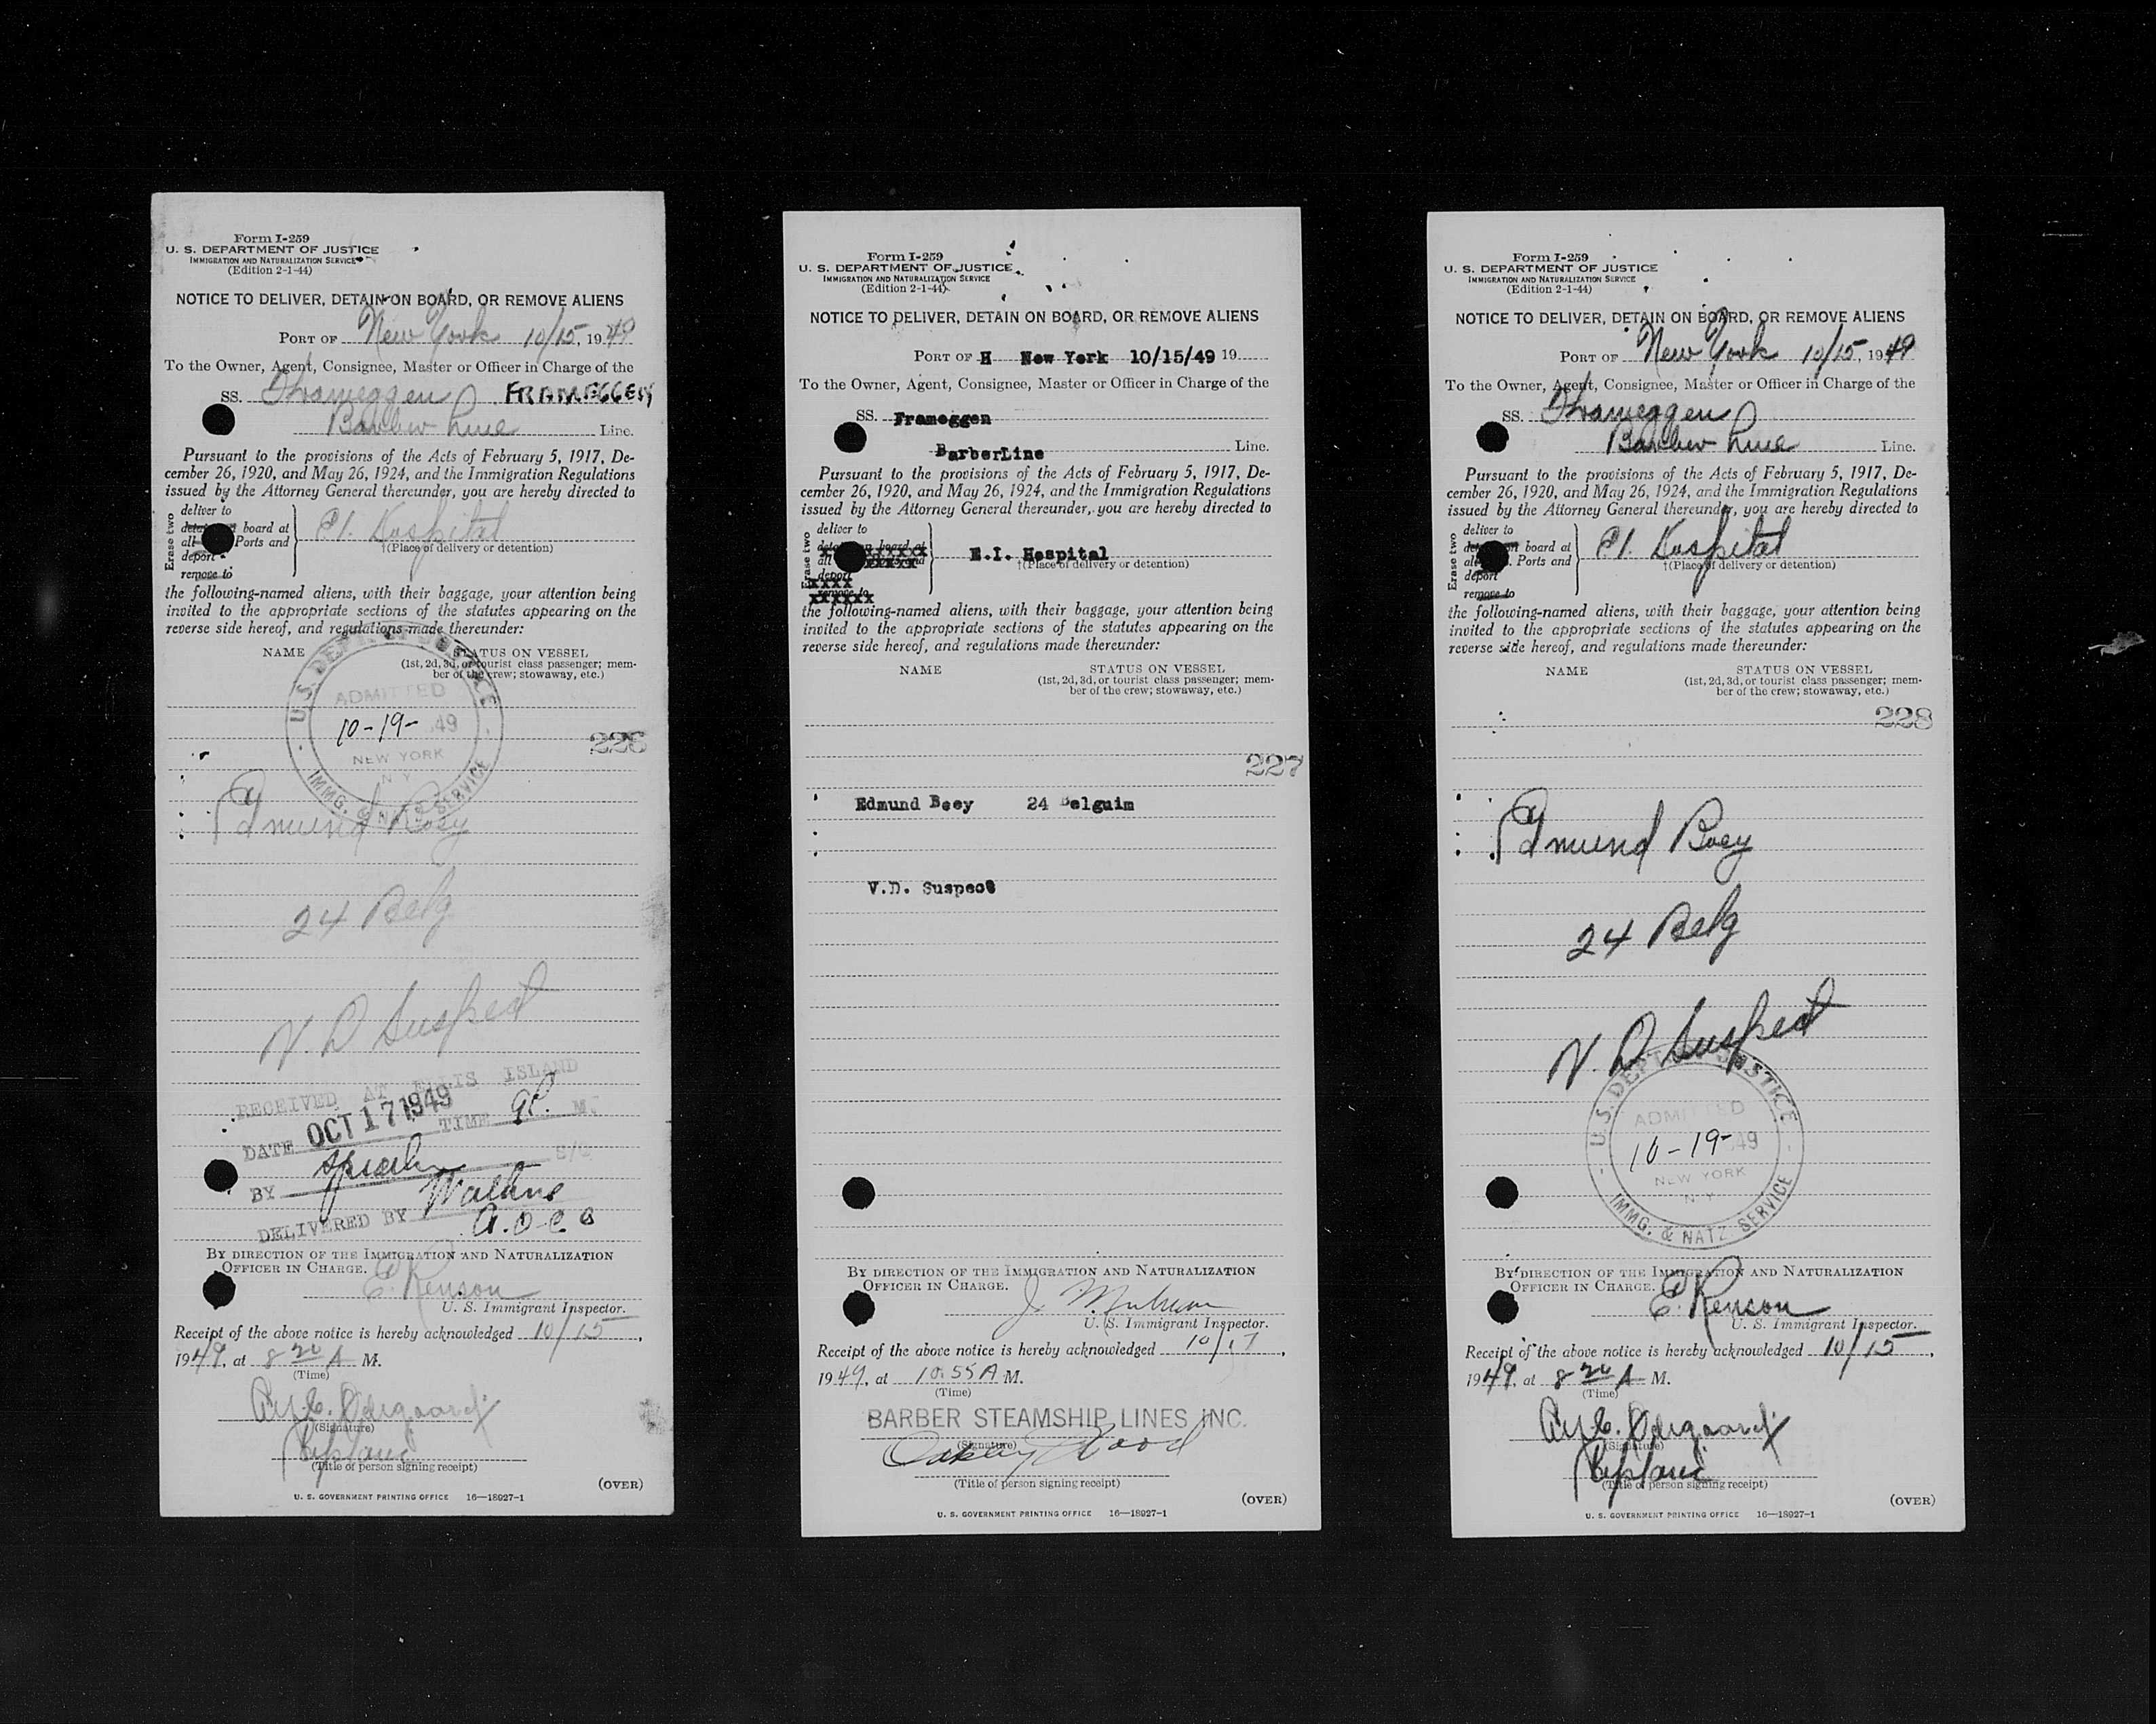 Form I-259
U. S. DEPARTMENT OF JUSTICE
IMMIGRATION AND NATURALIZATION SERVICE
(Edition 2-1-44)
NOTICE TO DELIVER, DETAIN ON BOARD, OR REMOVE ALIENS
PORT OF New York 10/15, 1949
To the Owner, Agent, Consignee, Master or Officer in Charge of the
SS. Frameggen FRAMEGGEN
Barber Line Line.
Pursuant to the provisions of the Acts of February 5, 1917, De-
cember 26, 1920, and May 26, 1924, and the Immigration Regulations
issued by the Attorney General thereunder, you are hereby directed to
Erase two
deliver to
board at
all Ports and
deport
remove to
EI. Hospital
†(Place of delivery or detention)
the following-named aliens, with their baggage, your attention being
invited to the appropriate sections of the statutes appearing on the
reverse side hereof, and regulations made thereunder:
NAME STATUS ON VESSEL
(1st, 2d, 3d, or tourist class passenger; mem-
ber of the crew; stowaway, etc.)
U.S. DEPT. OF JUSTICE
ADMITTED
10-19-49
NEW YORK
N.Y.
IMMG. & NATZ. SERVICE
226
Edmund Boey
24 Belg
V.D Suspect
RECEIVED AT ELLIS ISLAND
DATE OCT 17 1949 TIME 9P. M.
BY
DELIVERED BY
BY DIRECTION OF THE IMMIGRATION AND NATURALIZATION
OFFICER IN CHARGE.
E. Renson
U. S. Immigrant Inspector.
Receipt of the above notice is hereby acknowledged 10/15,
1949, at 8 20 A M.
(Time)
(Signature)
Captain
(Title of person signing receipt)
(OVER)
U. S. GOVERNMENT PRINTING OFFICE 16—18927-1
Form I-259
U. S. DEPARTMENT OF JUSTICE
IMMIGRATION AND NATURALIZATION SERVICE
(Edition 2-1-44)
NOTICE TO DELIVER, DETAIN ON BOARD, OR REMOVE ALIENS
PORT OF H New York 10/15/49 19
To the Owner, Agent, Consignee, Master or Officer in Charge of the
SS. Frameggen
BarberLine Line.
Pursuant to the provisions of the Acts of February 5, 1917, De-
cember 26, 1920, and May 26, 1924, and the Immigration Regulations
issued by the Attorney General thereunder, you are hereby directed to
Erase two
deliver to
board at
all
deport
remove to
E.I. Hospital
†(Place of delivery or detention)
the following-named aliens, with their baggage, your attention being
invited to the appropriate sections of the statutes appearing on the
reverse side hereof, and regulations made thereunder:
NAME STATUS ON VESSEL
(1st, 2d, 3d, or tourist class passenger; mem-
ber of the crew; stowaway, etc.)
227
Edmund Boey 24 Belguim
V.D. Suspect
BY DIRECTION OF THE IMMIGRATION AND NATURALIZATION
OFFICER IN CHARGE.
U. S. Immigrant Inspector.
Receipt of the above notice is hereby acknowledged 10/17,
1949, at 10.55 A M.
(Time)
BARBER STEAMSHIP LINES INC.
(Signature)
(Title of person signing receipt)
(OVER)
U. S. GOVERNMENT PRINTING OFFICE 16—18927-1
Form I-259
U. S. DEPARTMENT OF JUSTICE
IMMIGRATION AND NATURALIZATION SERVICE
(Edition 2-1-44)
NOTICE TO DELIVER, DETAIN ON BOARD, OR REMOVE ALIENS
PORT OF New York 10/15, 1949
To the Owner, Agent, Consignee, Master or Officer in Charge of the
SS. Frameggen
Barber Line Line.
Pursuant to the provisions of the Acts of February 5, 1917, De-
cember 26, 1920, and May 26, 1924, and the Immigration Regulations
issued by the Attorney General thereunder, you are hereby directed to
Erase two
deliver to
board at
all Ports and
deport
remove to
EI. Hospital
†(Place of delivery or detention)
the following-named aliens, with their baggage, your attention being
invited to the appropriate sections of the statutes appearing on the
reverse side hereof, and regulations made thereunder:
NAME STATUS ON VESSEL
(1st, 2d, 3d, or tourist class passenger; mem-
ber of the crew; stowaway, etc.)
228
Edmund Boey
24 Belg
V.D Suspect
U.S. DEPT. OF JUSTICE
ADMITTED
10-19-49
NEW YORK
N.Y.
IMMG. & NATZ. SERVICE
BY DIRECTION OF THE IMMIGRATION AND NATURALIZATION
OFFICER IN CHARGE.
E. Renson
U. S. Immigrant Inspector.
Receipt of the above notice is hereby acknowledged 10/15,
1949, at 8 20 A M.
(Time)
(Signature)
Captain
(Title of person signing receipt)
(OVER)
U. S. GOVERNMENT PRINTING OFFICE 16—18927-1